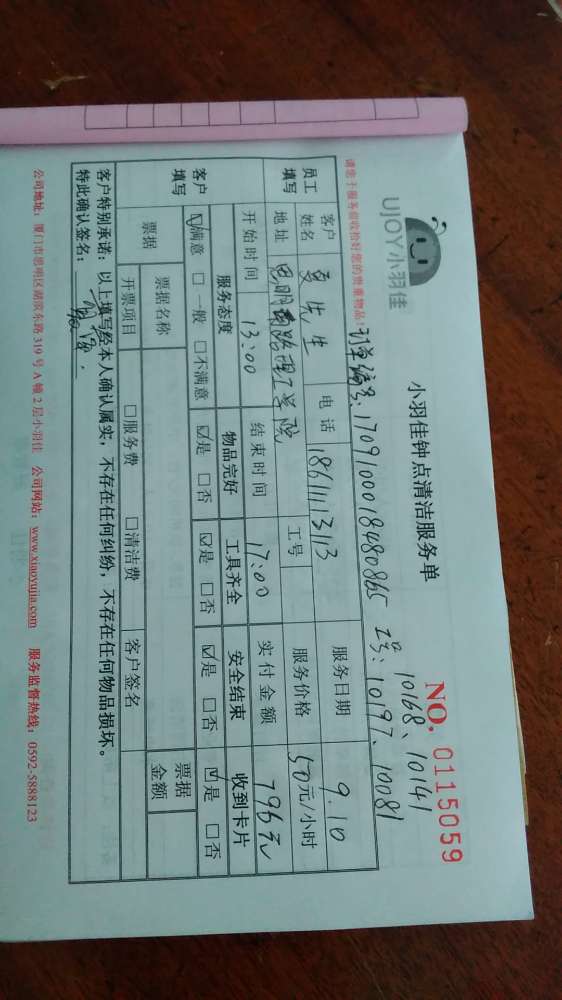 UJOY小羽佳
小羽佳钟点清洁服务单
NO. 0115059
10168、10141
请您于服务前收拾好您的贵重物品!
订单编号:1709100018480865 工号:10197、10081
员工填写
客户姓名 夏先生 电话 18611113113 服务日期 9.10
地址 思明南路理工学院 工号 服务价格 50元/小时
开始时间 13:00 结束时间 17:00 实付金额 796元
客户填写
服务态度 物品完好 工具齐全 安全结束 收到卡片
☑满意 □一般 □不满意 ☑是 □否 ☑是 □否 ☑是 □否 ☑是 □否
票据 票据名称 票据金额
开票项目 □服务费 □清洁费 客户签名
客户特别承诺:以上填写经本人确认属实,不存在任何纠纷,不存在任何物品损坏。
特此确认签名:
公司地址:厦门市思明区湖滨东路319号A幢2层小羽佳 公司网站:www.xiaoyujia.com 服务监督热线:0592-5888123